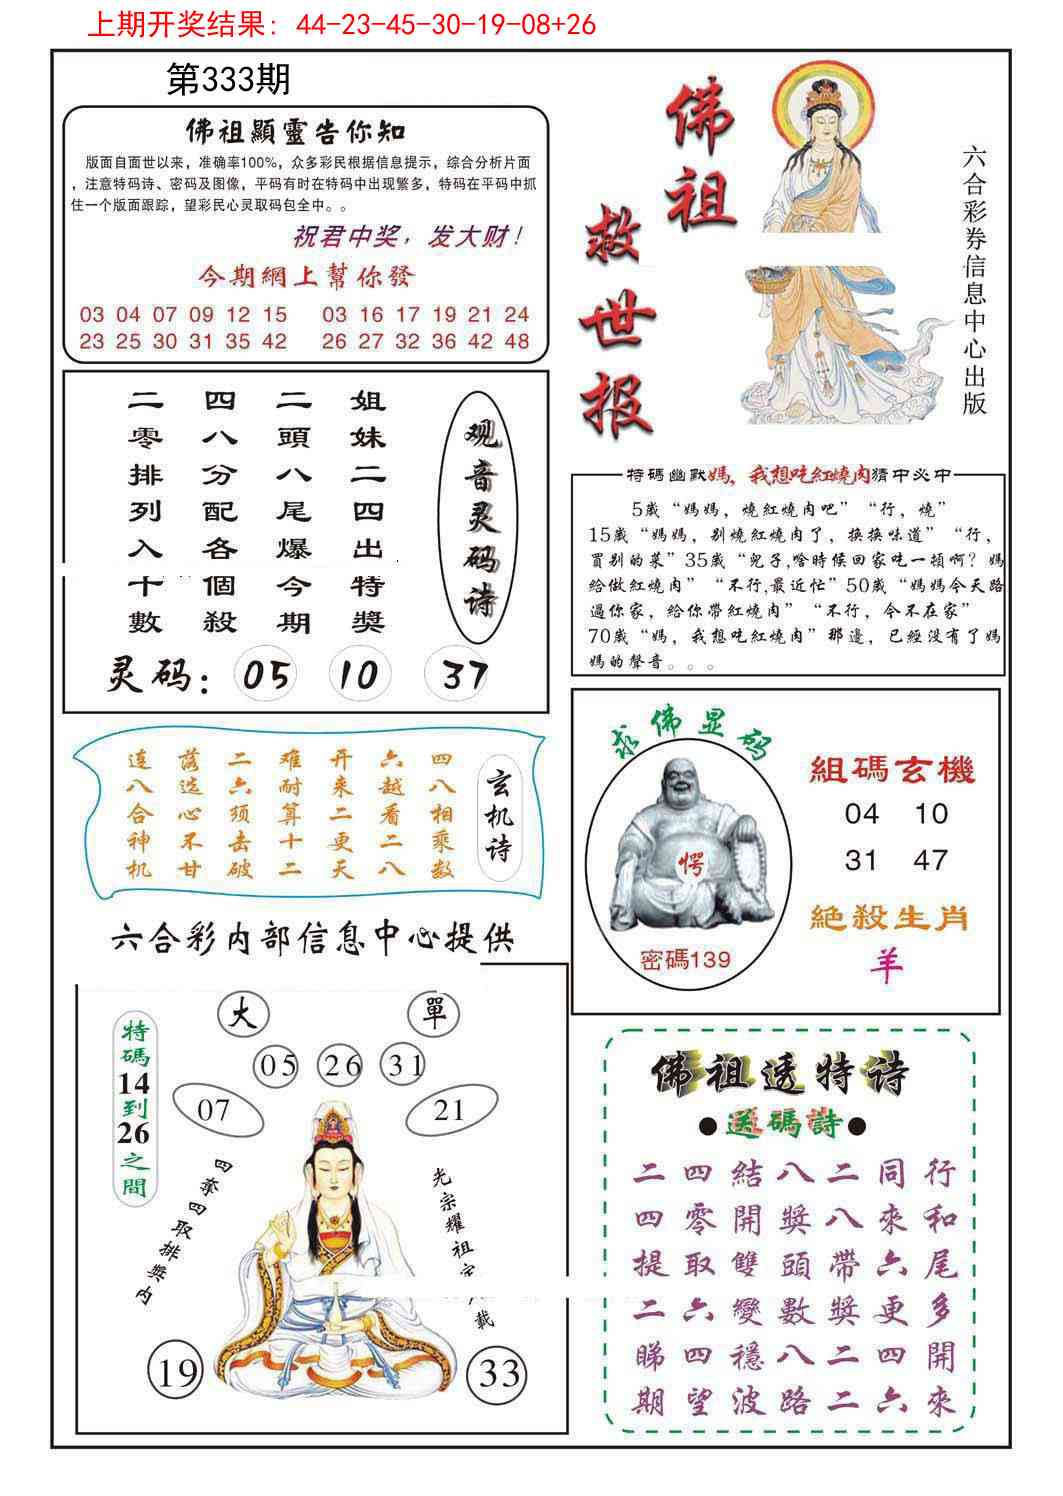 上期开奖结果：44-23-45-30-19-08+26
第333期
佛祖顯靈告你知
版面自面世以来，准确率100%，众多彩民根据信息提示，综合分析片面
，注意特码诗、密码及图像，平码有时在特码中出现繁多，特码在平码中抓
住一个版面跟踪，望彩民心灵取码包全中。。
祝君中奖，发大财！
今期網上幫你發
03 04 07 09 12 15 03 16 17 19 21 24
23 25 30 31 35 42 26 27 32 36 42 48
佛祖
救世报
六合彩券信息中心出版
姐妹二四出特獎
二頭八尾爆今期
四八分配各個殺
二零排列入十數
观音灵码诗
灵码：05 10 37
特碼幽默媽，我想吃紅燒肉猜中必中
5歲“媽媽，燒紅燒肉吧”“行，燒”
15歲“媽媽，别燒紅燒肉了，换换味道”“行，
買别的菜”35歲“兒子,啥時候回家吃一頓啊？媽
給做紅燒肉”“不行,最近忙”50歲“媽媽今天路
過你家，給你帶紅燒肉”“不行，今不在家”
70歲“媽，我想吃紅燒肉”那邊，已經没有了媽
媽的聲音。。。
玄机诗
四八相乘数
六越看二八
开来二更天
难耐算十二
二六须击破
落选心不甘
连八合神机
求佛显码
愕
密碼139
組碼玄機
04 10
31 47
絶殺生肖
羊
六合彩内部信息中心提供
特碼14到26之間
大 單
05 26 31
07 21
四奪四取排獎内
光宗耀祖
載
19 33
佛祖透特诗
●送碼詩●
行和尾多開來
同來六更四六
二八帶獎二二
八獎頭數八路
結開雙變穩波
四零取六四望
二四提二睇期